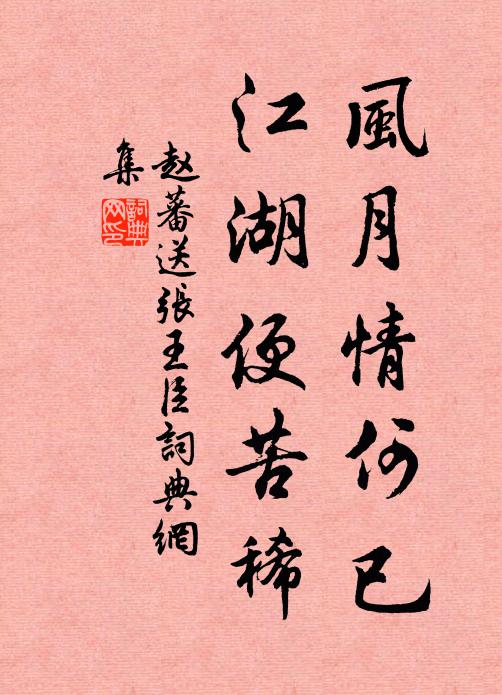 風月情何已
江湖便苦稀
赵蕃送張王臣詞典網
集
詞典
网印